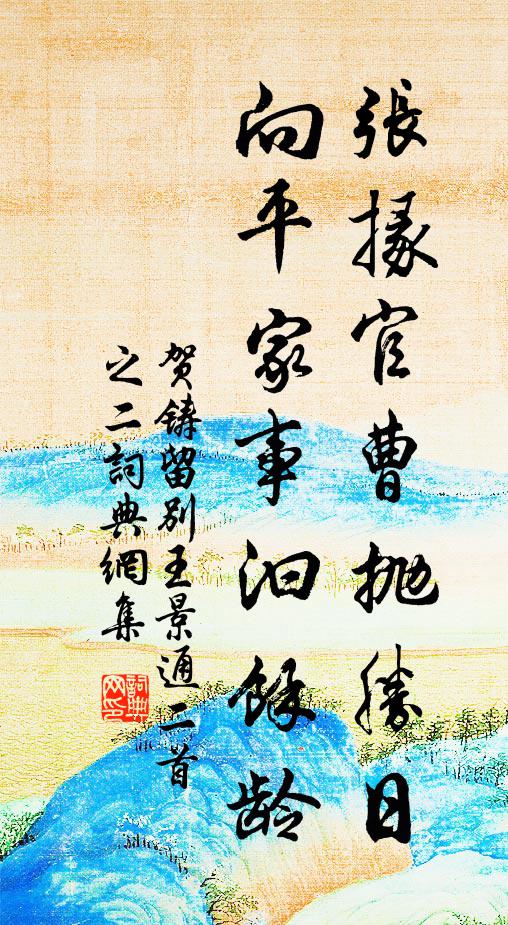 張掾官曹抛勝日
向平家事汩餘齡
賀鑄留別王景通二首
之二詞典網集
詞典网印